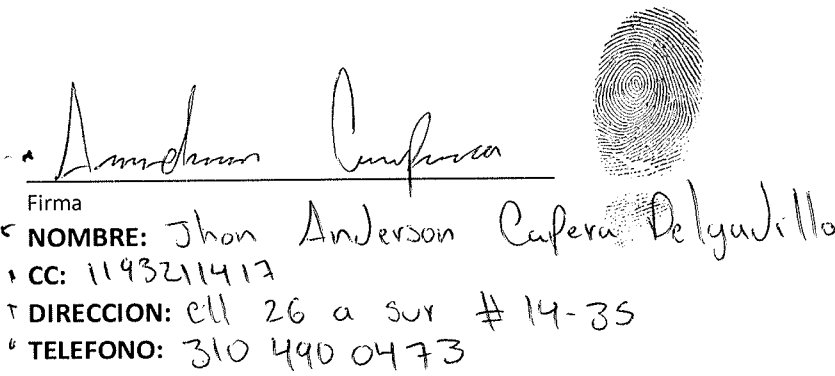 Anderson Capera
Firma
NOMBRE: Jhon Anderson Capera Delgadillo
CC: 1193211417
DIRECCION: cll 26 a sur # 14-35
TELEFONO: 310 490 0473